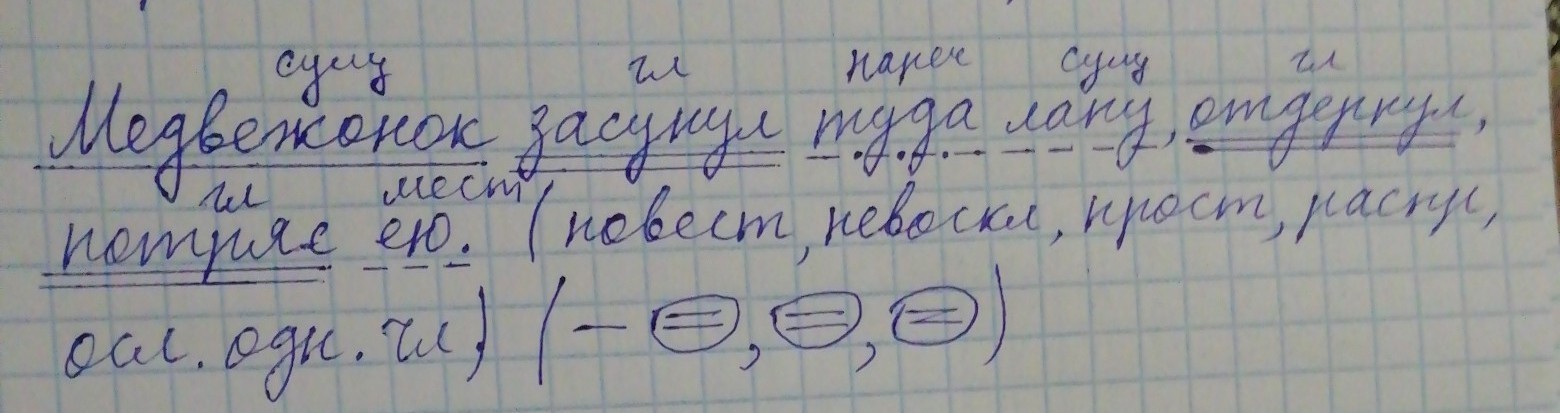 сущ гл нареч сущ гл
Медвежонок засунул туда лапу, отдернул,
гл мест
потряс ею. (повест, невоскл, прост, распр,
осл. одн. чл) (— =, =, =)